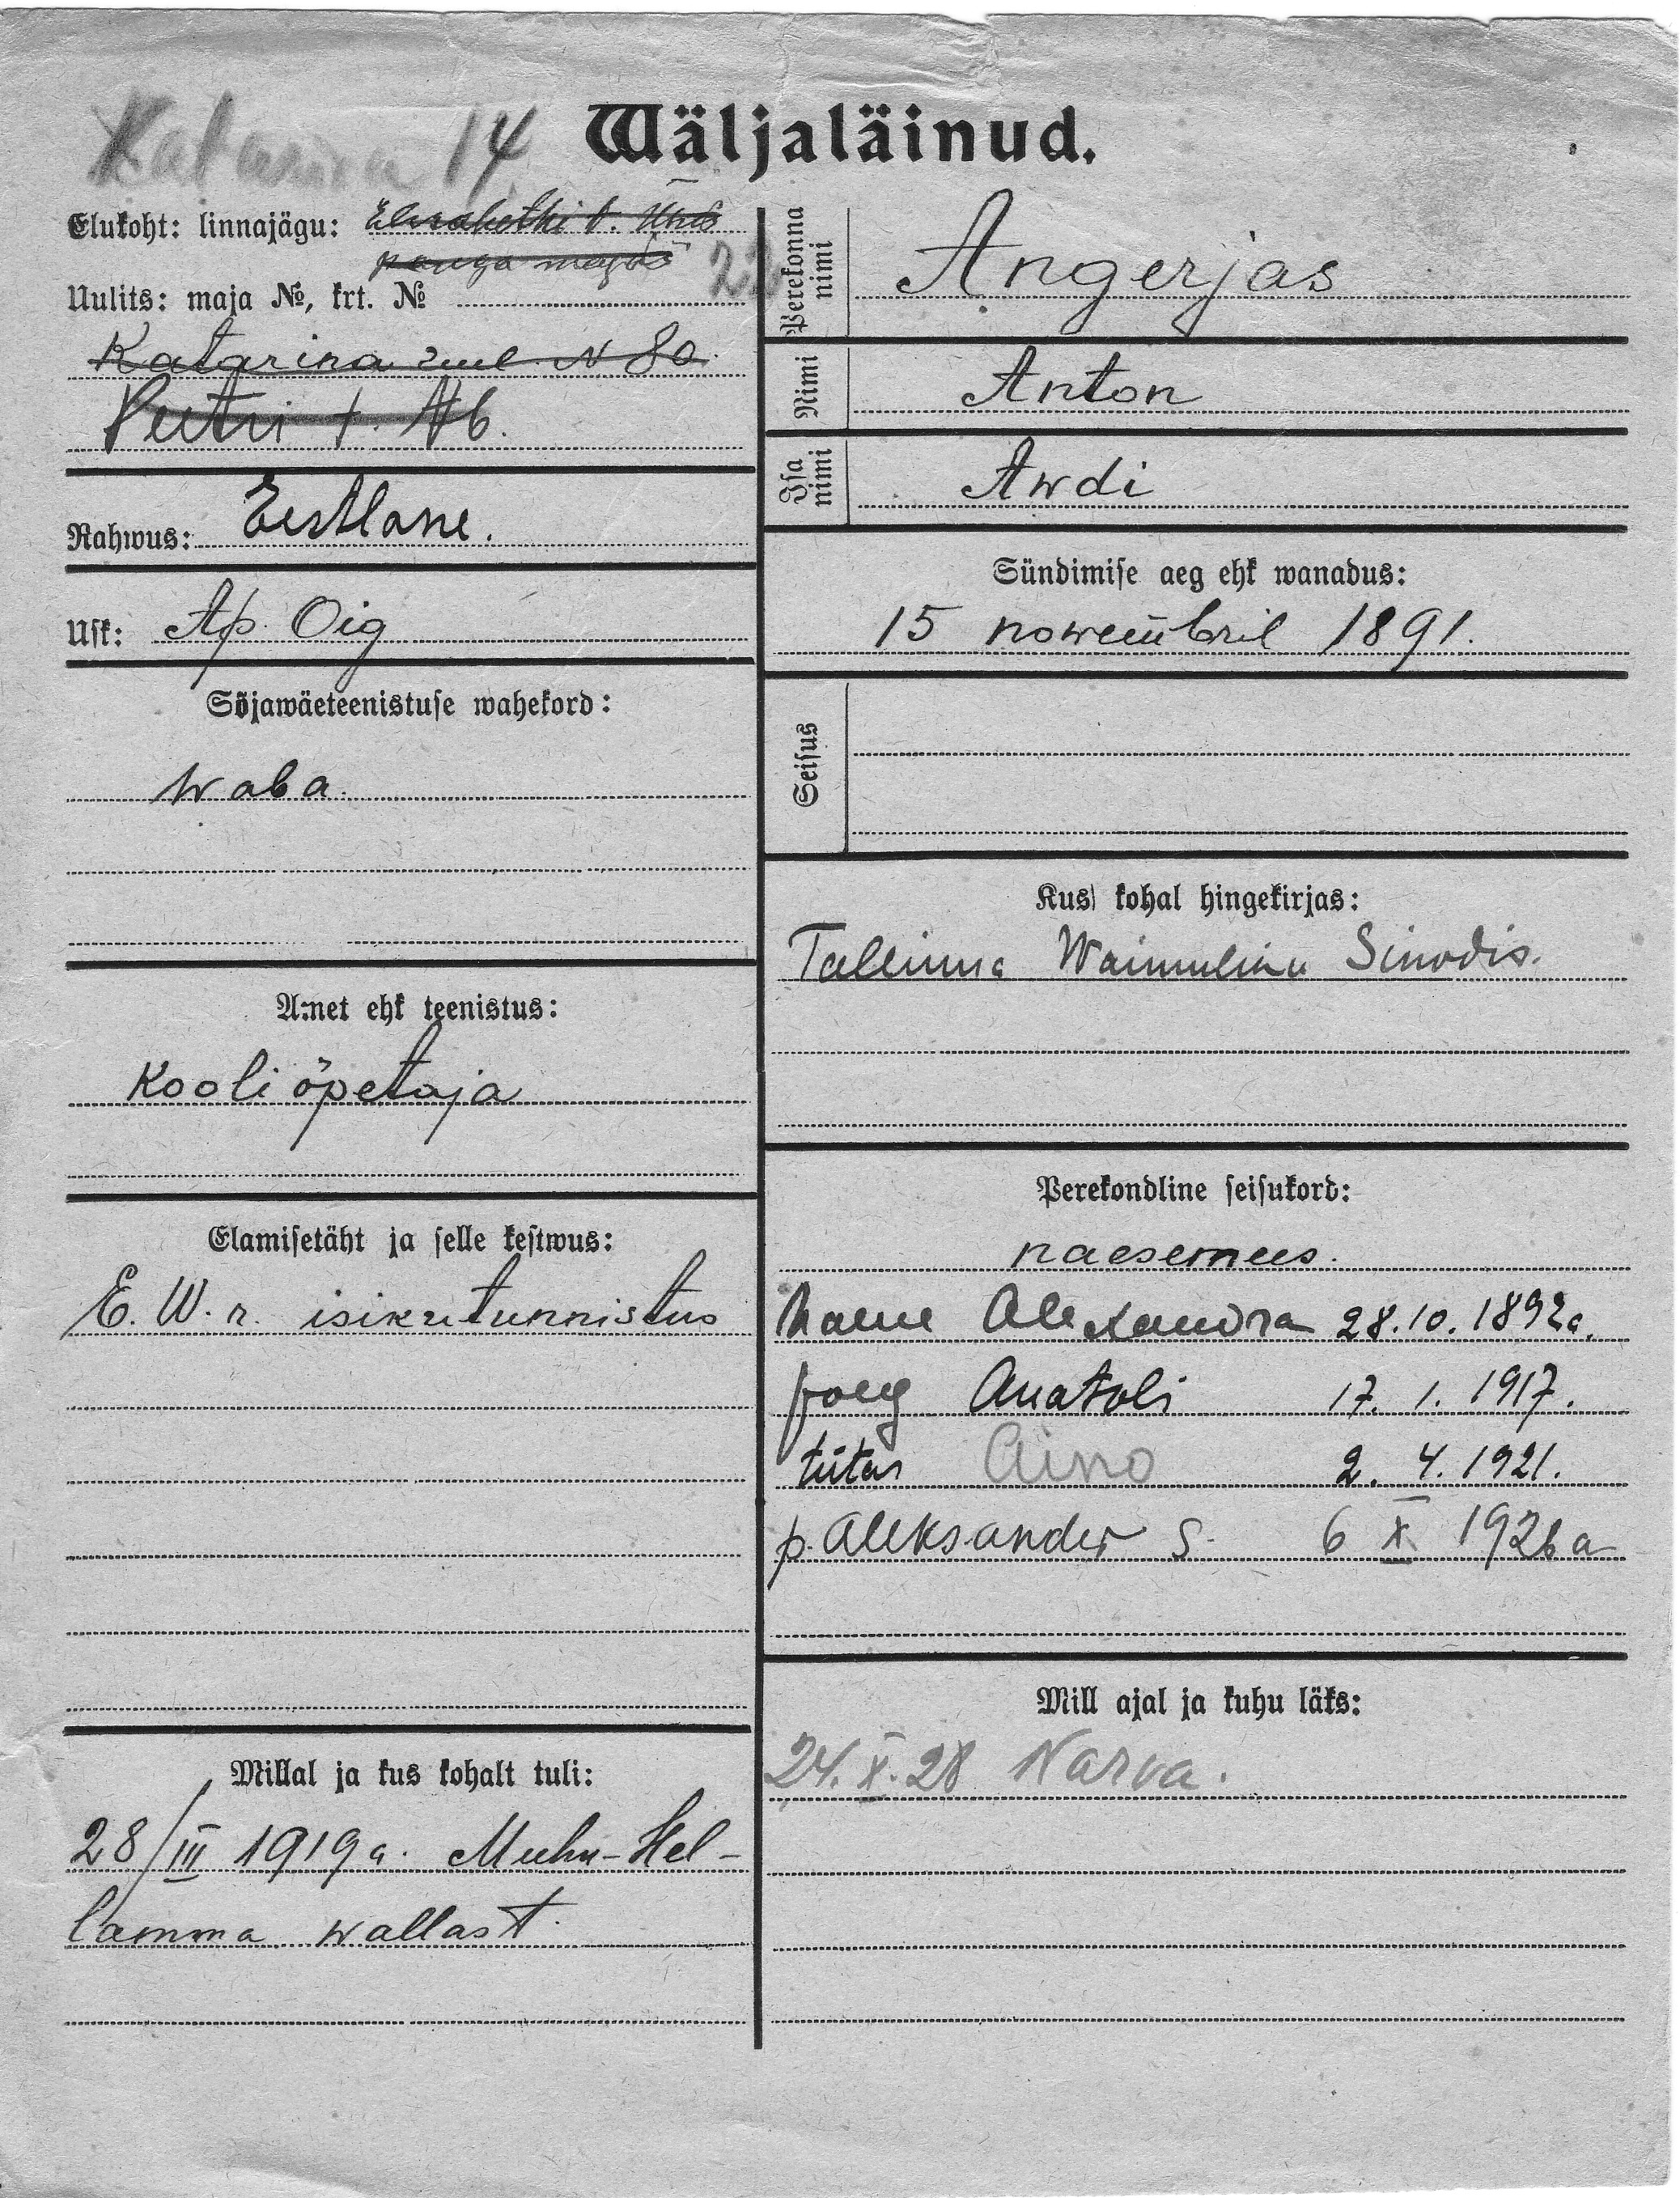 Katarina 14
Wäljaläinud.
Elukoht: linnajägu: Elisabethi t. Ühis
panga majas
22
Uulits: maja №, krt. №
Katarina uul. N 80.
Peetri t. № 6.
Rahwus: Eestlane.
Usk: Ap. Oig
Sõjawäeteenistuse wahekord:
waba.
Amet ehk teenistus:
Kooli õpetaja
Elamisetäht ja selle kestwus:
E. W. r. isikutunnistus
Millal ja kus kohalt tuli:
28/III 1919 a. Muhu-Hel-
lamma wallast.
Perekonna nimi Angerjas
Nimi Anton
Isa nimi Awdi
Sündimise aeg ehk wanadus:
15 nowembril 1891.
Seisus
Kus kohal hingekirjas:
Tallinna Waimuliku Sinodis.
Perekondline seisukord:
naesemees.
naene Alexandra 28.10.1892a.
poeg Anatoli 17. 1. 1917.
tütar Aino 2. 4. 1921.
p. Aleksander s. 6 X 1926 a
Mill ajal ja kuhu läks:
24. X. 28 Narva.